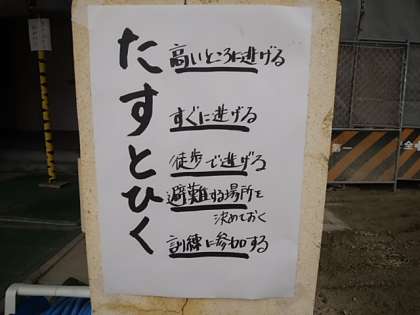 たすとひく
高いところに逃げる
すぐに逃げる
徒歩で逃げる
避難する場所を
決めておく
訓練に参加する
第一
全